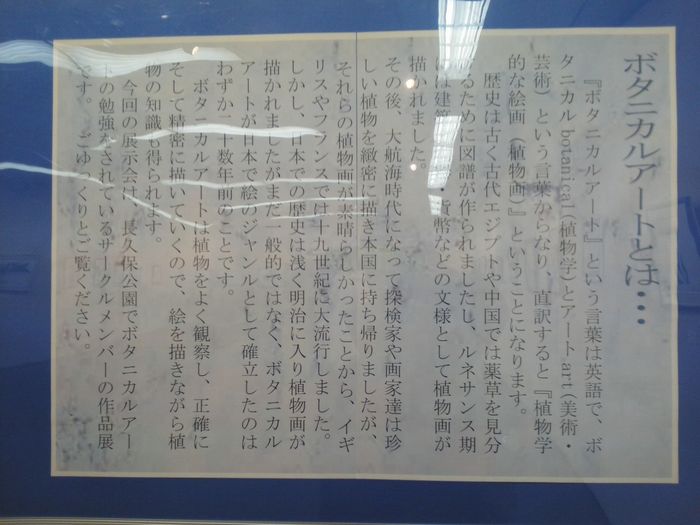 ボタニカルアートとは・・・
『ボタニカルアート』という言葉は英語で、ボ
タニカル botanical(植物学)とアート art(美術・
芸術)という言葉からなり、直訳すると『植物学
的な絵画(植物画)』ということになります。
歴史は古く古代エジプトや中国では薬草を見分
けるために図譜が作られましたし、ルネサンス期
には建築 ・貨幣などの文様として植物画が
描かれました。
その後、大航海時代になって探検家や画家達は珍
しい植物を緻密に描き本国に持ち帰りましたが、
それらの植物画が素晴らしかったことから、イギ
リスやフランスでは十九世紀に大流行しました。
しかし、日本での歴史は浅く明治に入り植物画が
描かれましたがまだ一般的ではなく、ボタニカル
アートが日本で絵のジャンルとして確立したのは
わずか二十数年前のことです。
ボタニカルアートは植物をよく観察し、正確に
そして精密に描いていくので、絵を描きながら植
物の知識も得られます。
今回の展示会は、長久保公園でボタニカルアー
トの勉強をされているサークルメンバーの作品展
です。ごゆっくりとご覧ください。